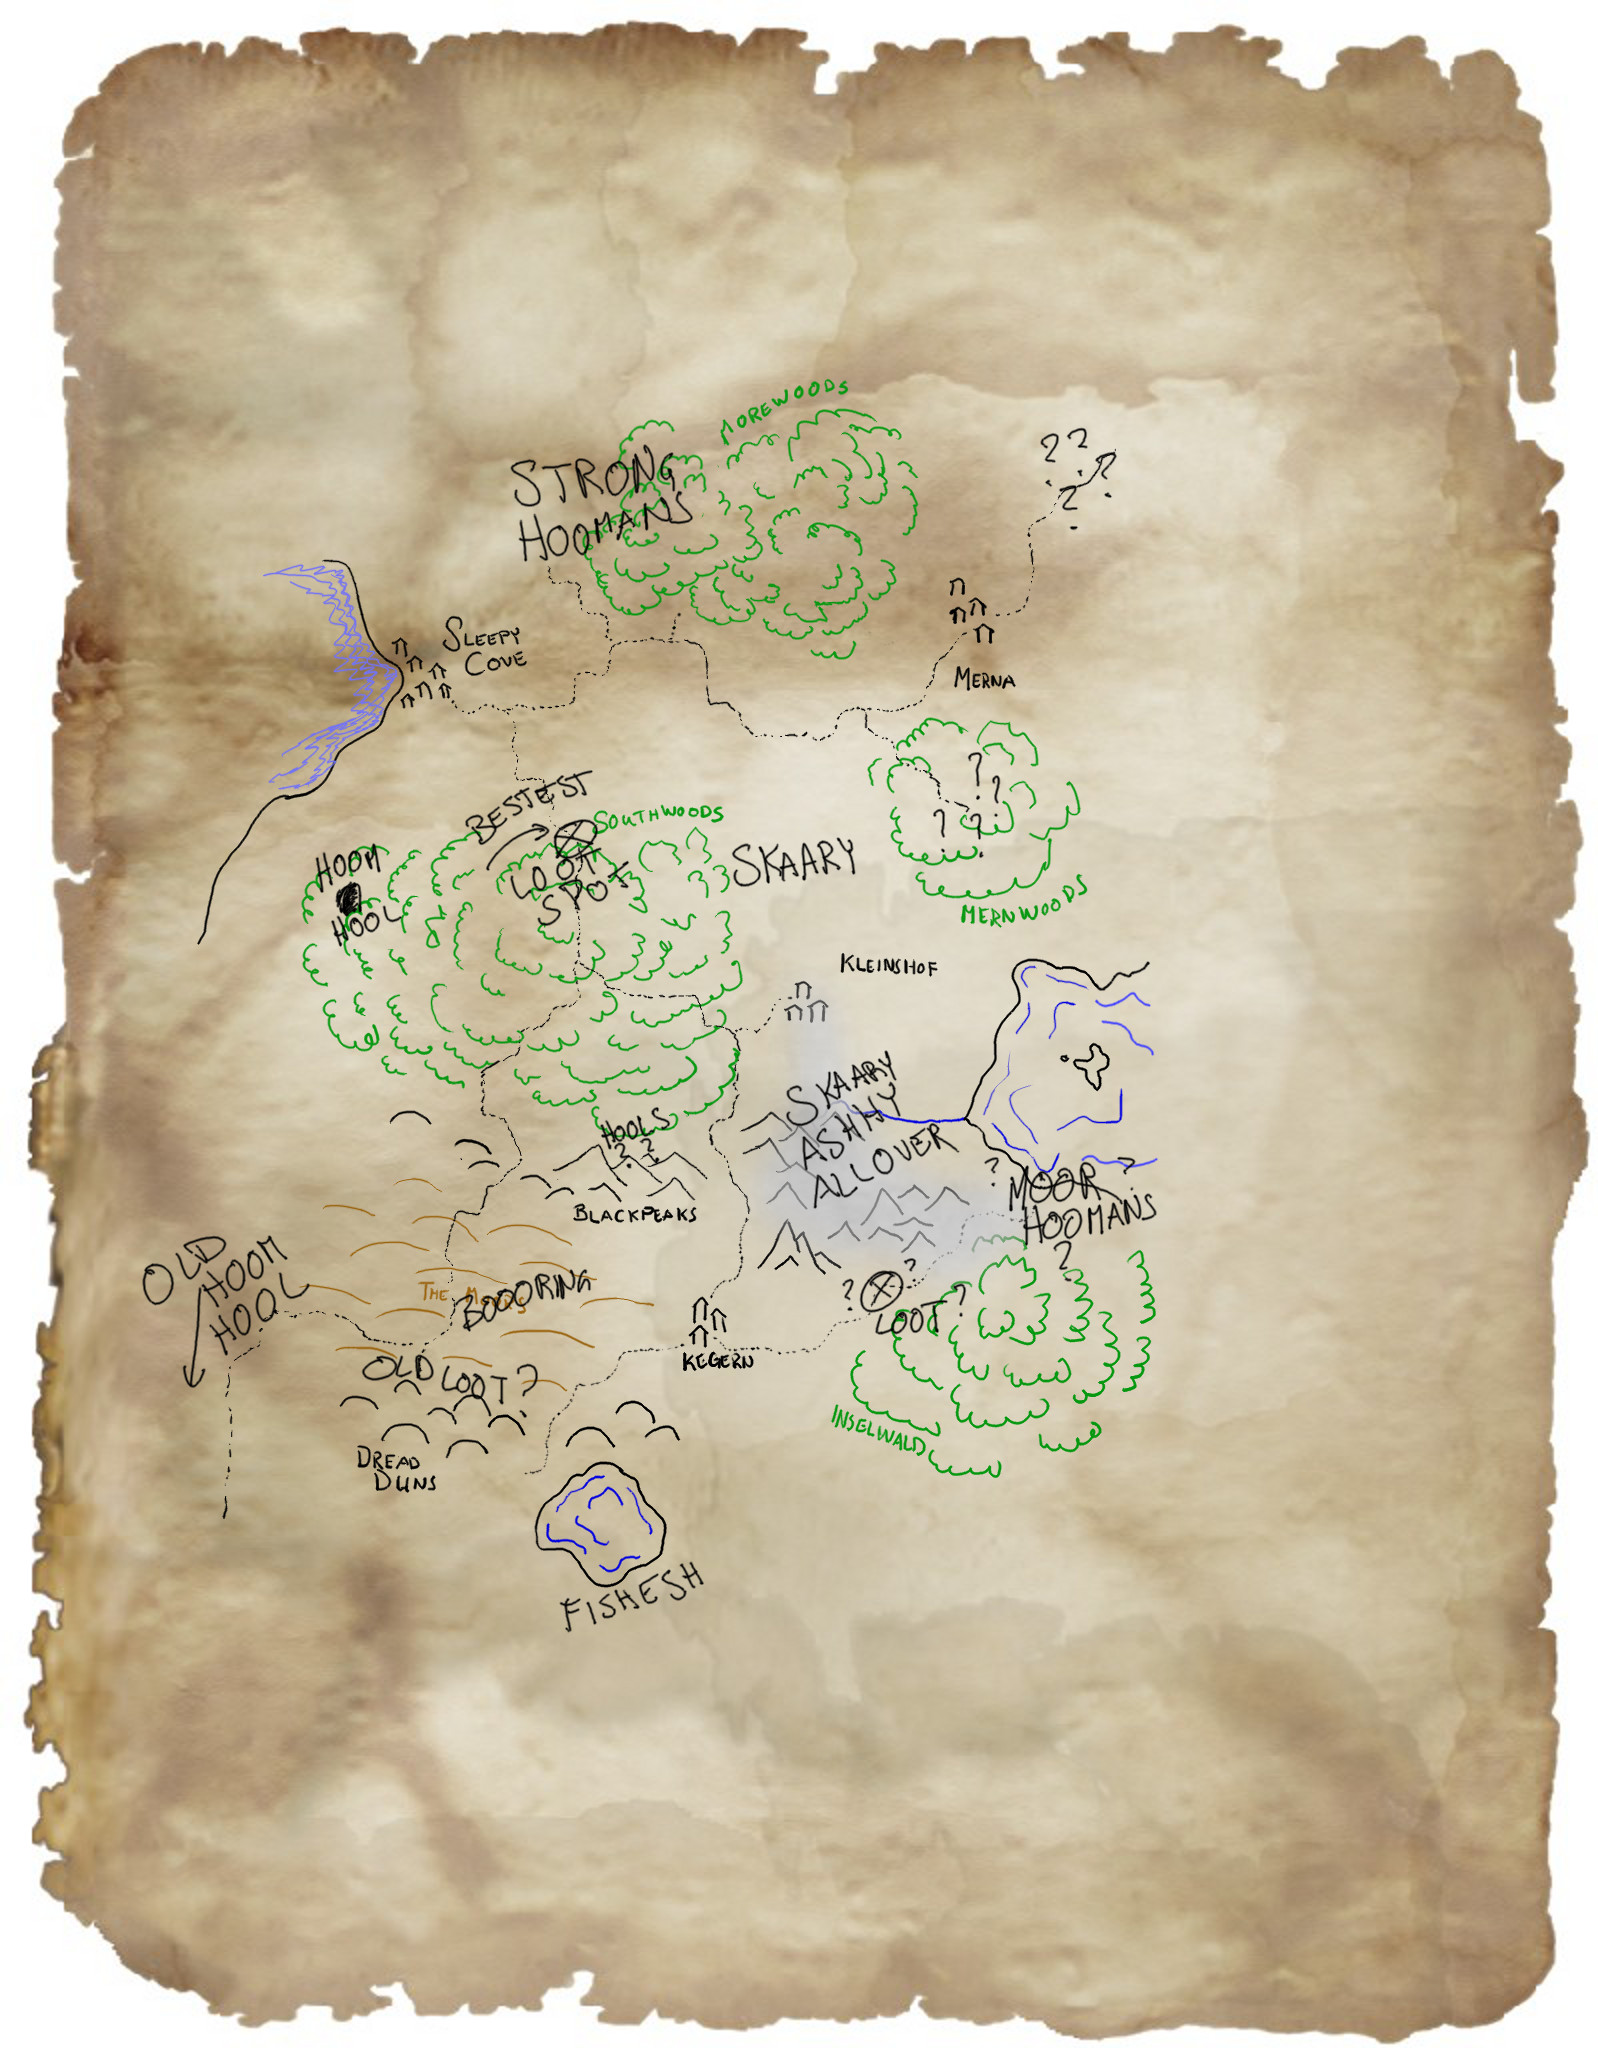 MOREWOODS
STRONG
HOOMANS
? ?
? ?
SLEEPY
COVE
MERNA
BESTEST
SOUTHWOODS
LOOT
SPOT
SKAARY
? ?
? ?
MERNWOODS
HOOM
HOOL
KLEINSHOF
SKAARY
ASHHY
ALLOVER
HOOLS
? ?
BLACKPEAKS
? ?
MOOR
HOOMANS
?
OLD
HOOM
HOOL
THE
BOOORING
? ?
LOOT?
KEGERN
OLD LOOT?
INSELWALD
DREAD
DUNS
FISHESH